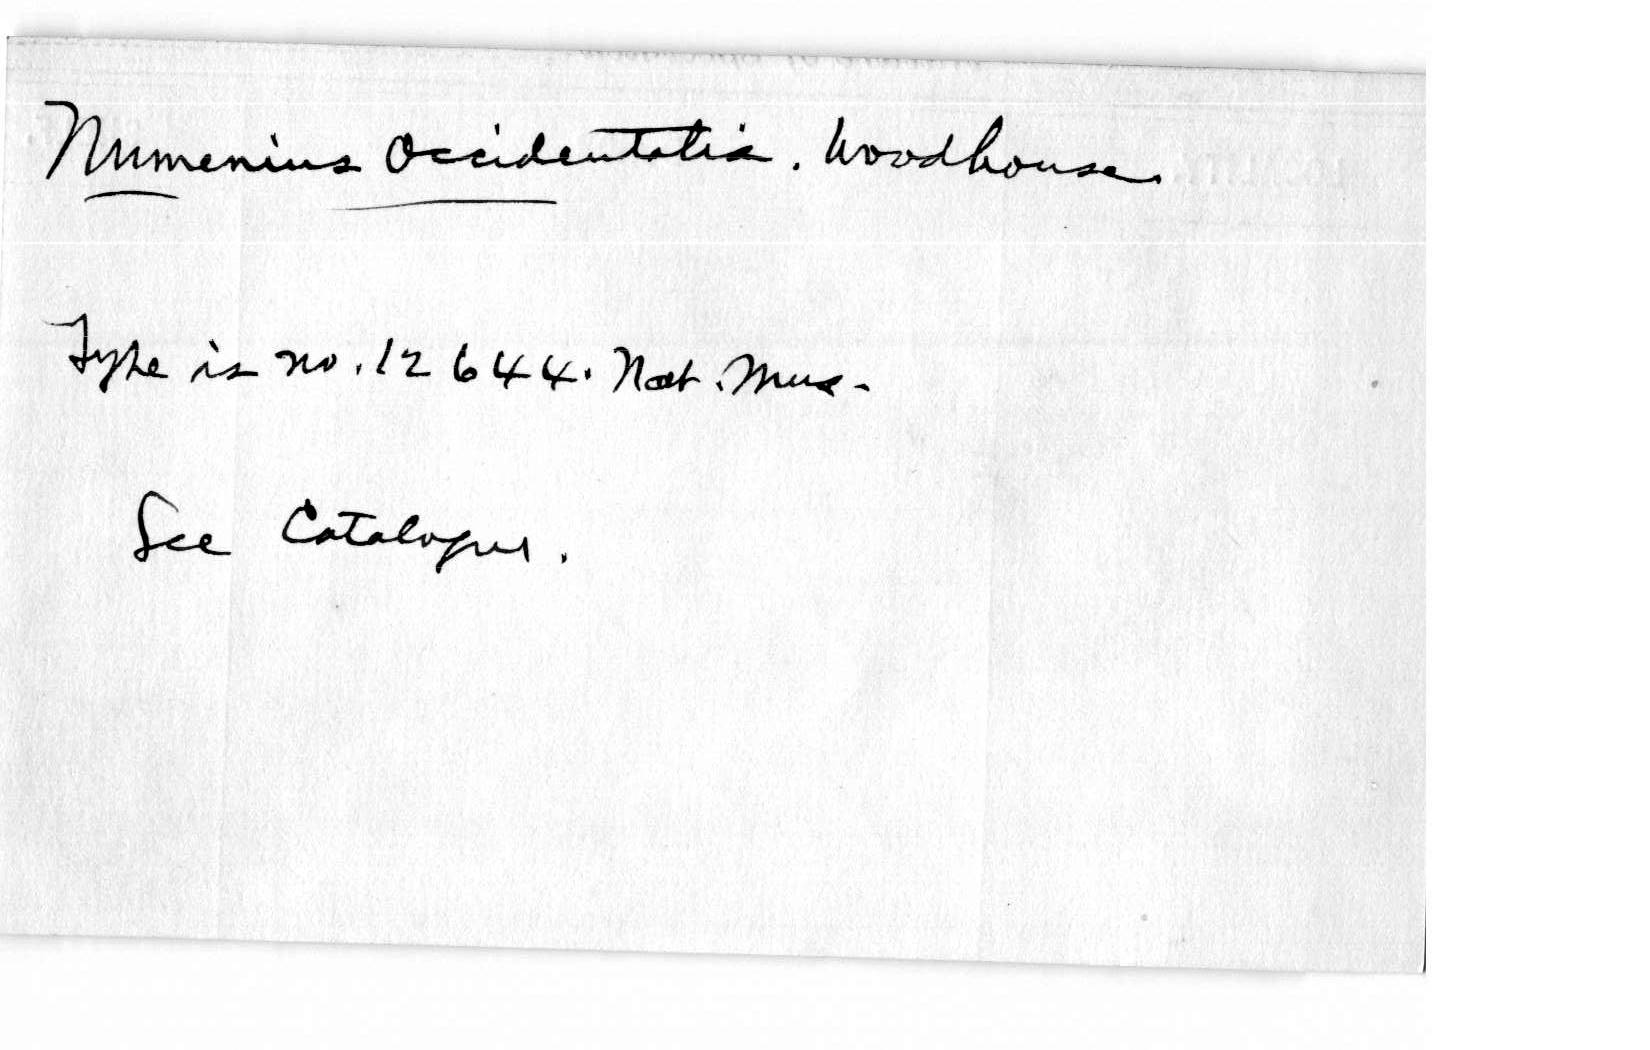 Numenius Occidentalis. Woodhouse.
Type is no. 12644. Nat. Mus.
See Catalogue.